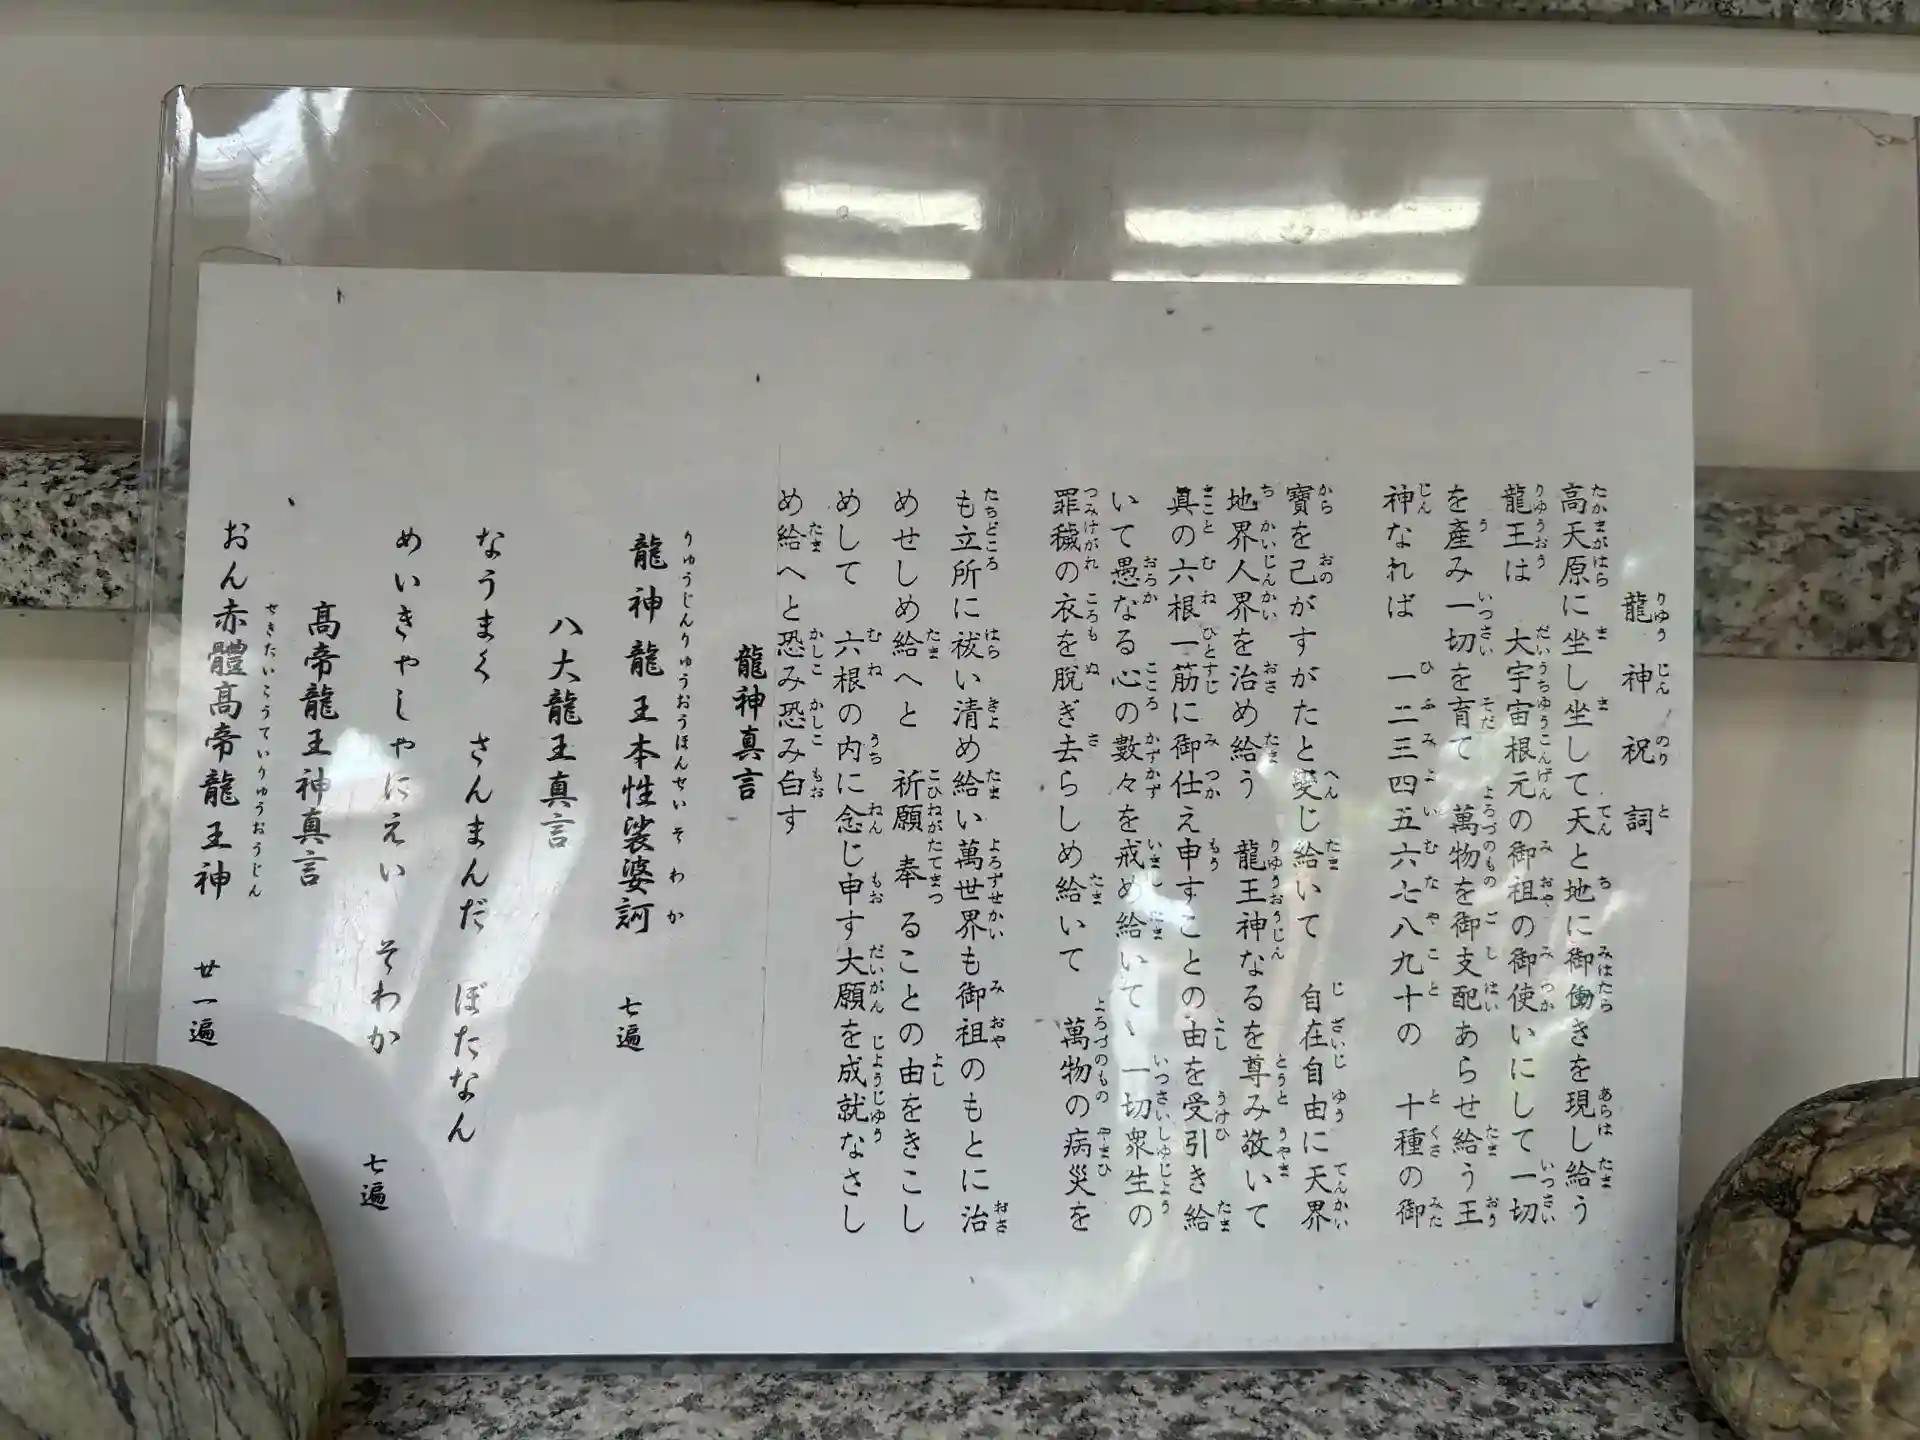 龍神祝詞
高天原に坐し坐して天と地に御働きを現し給う
龍王は　大宇宙根元の御祖の御使いにして一切
を産み一切を育て　萬物を御支配あらせ給う王
神なれば　一二三四五六七八九十の　十種の御
寶を己がすがたと変じ給いて　自在自由に天界
地界人界を治め給う　龍王神なるを尊み敬いて
眞の六根一筋に御仕え申すことの由を受引き給
いて愚なる心の數々を戒め給いて、一切衆生の
罪穢の衣を脱ぎ去らしめ給いて　萬物の病災を
も立所に祓い清め給い萬世界も御祖のもとに治
めせしめ給へと　祈願奉ることの由をきこし
めして　六根の内に念じ申す大願を成就なさし
め給へと恐み恐み白す
龍神真言
龍神龍王本性裟婆訶　七遍
八大龍王真言
なうまく　さんまんだ　ぼたなん
めいきゃしゃにえい　そわか　七遍
高帝龍王神真言
おん赤體高帝龍王神　廿一遍